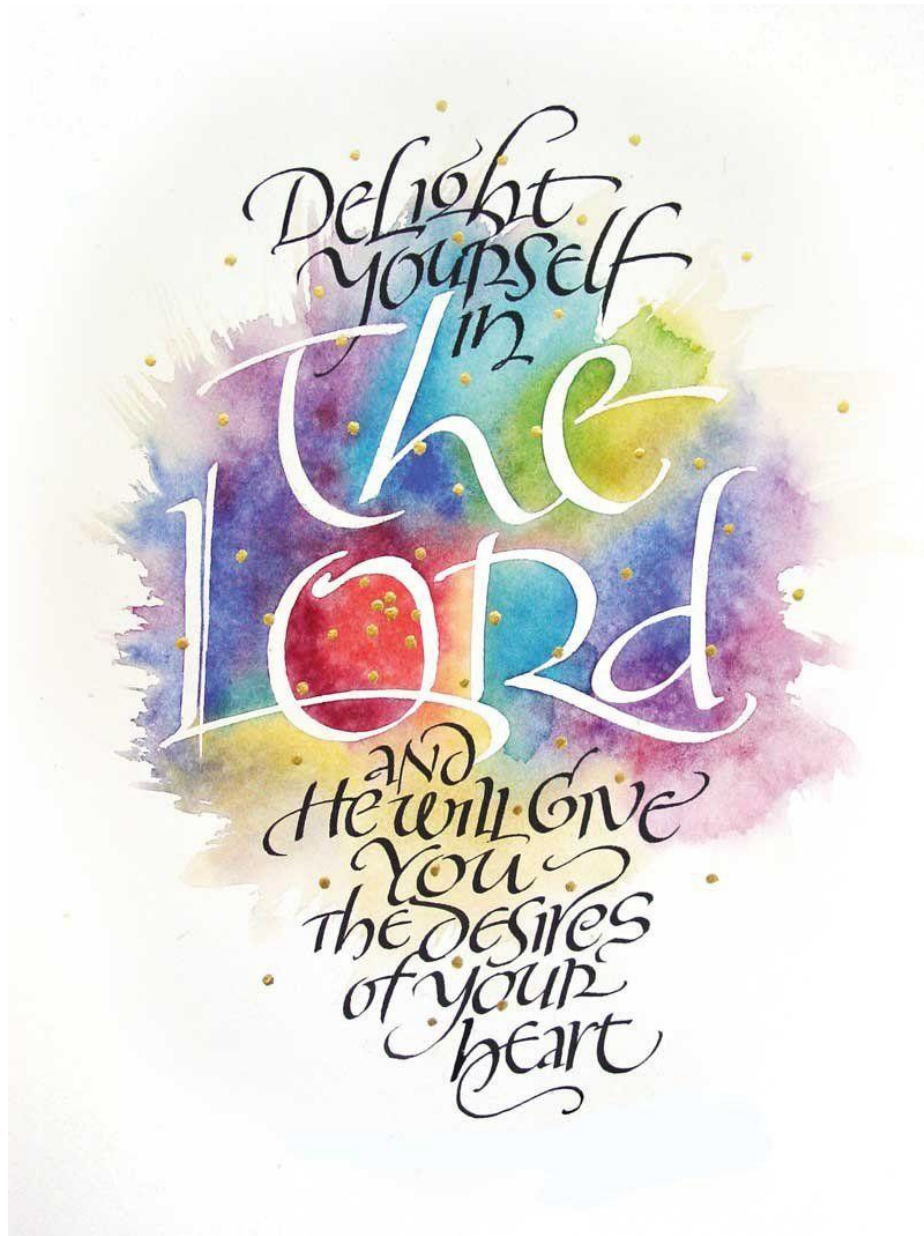 Delight
yourself
in
The
Lord
and
He will Give
You
The desires
of your
heart